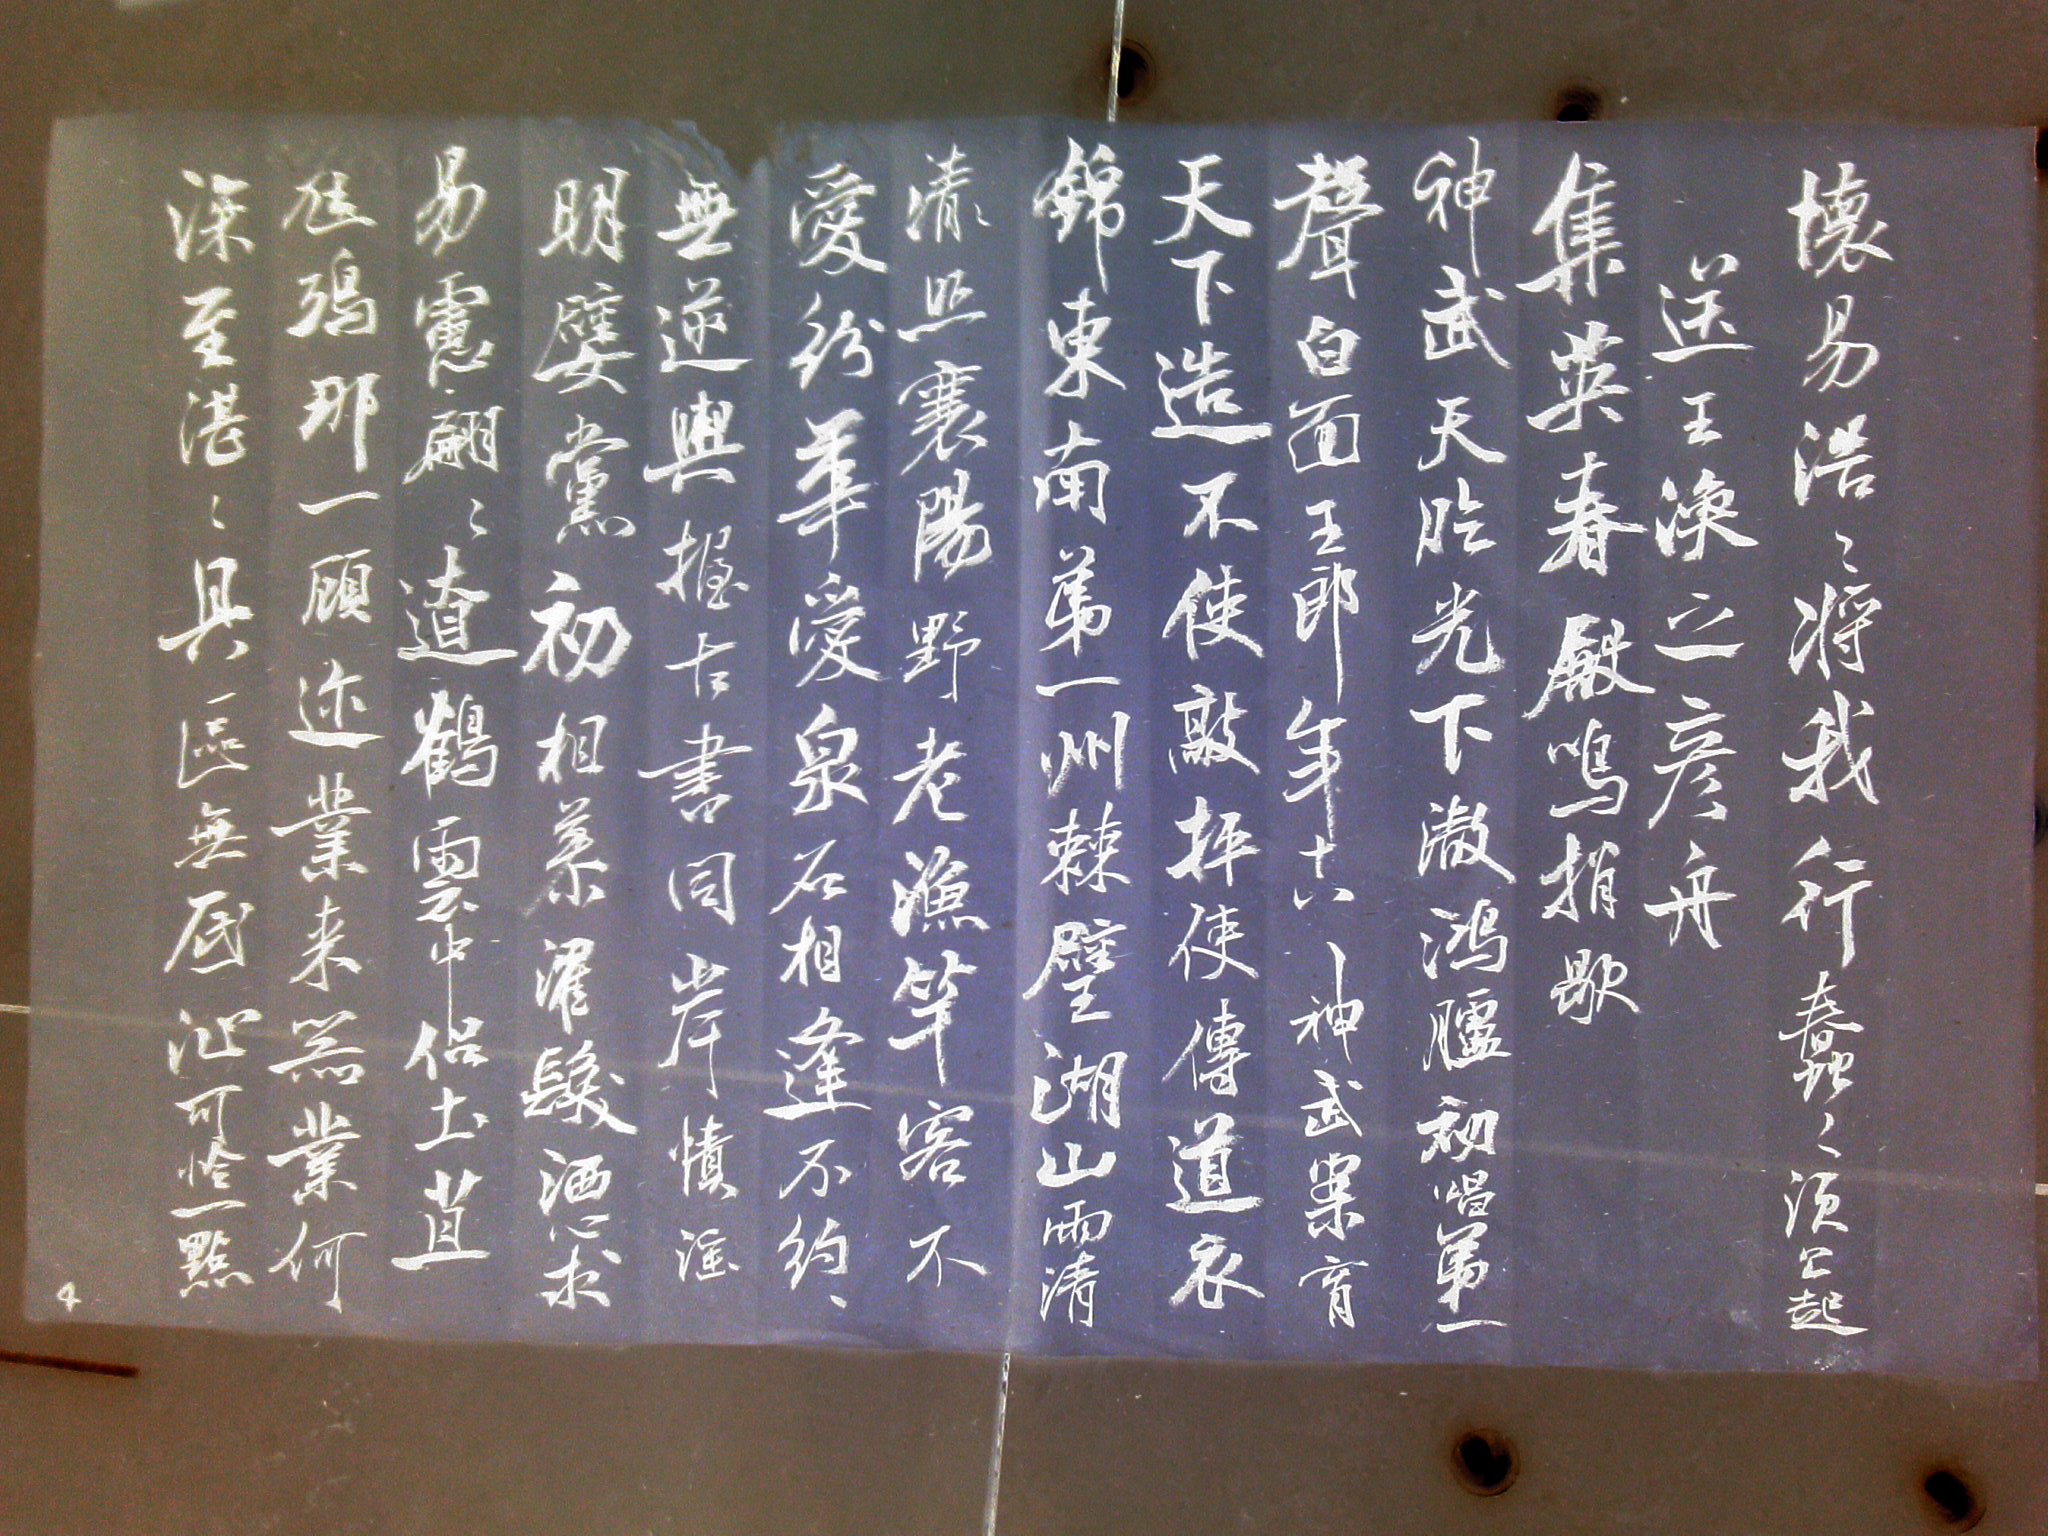 懷易浩〻將我行蠢〻須公起
送王渙之彥舟
集英春殿鳴捎歇
神武天臨光下澈鴻臚初唱第一
聲白面王郎年十八神武樂育
天下造不使敲抨使傳道衣
錦東南第一州棘璧湖山兩清
清照襄陽野老漁竿客不
愛紛華愛泉石相逢不約
無逆輿握古書同岸幘淫
朋嬖黨初相慕濯髮洒心求
易慮翩〻遼鶴雲中侶土苴
尪鴟那一顧迩業來無業何
深至湛〻具區無底沚可憐一點